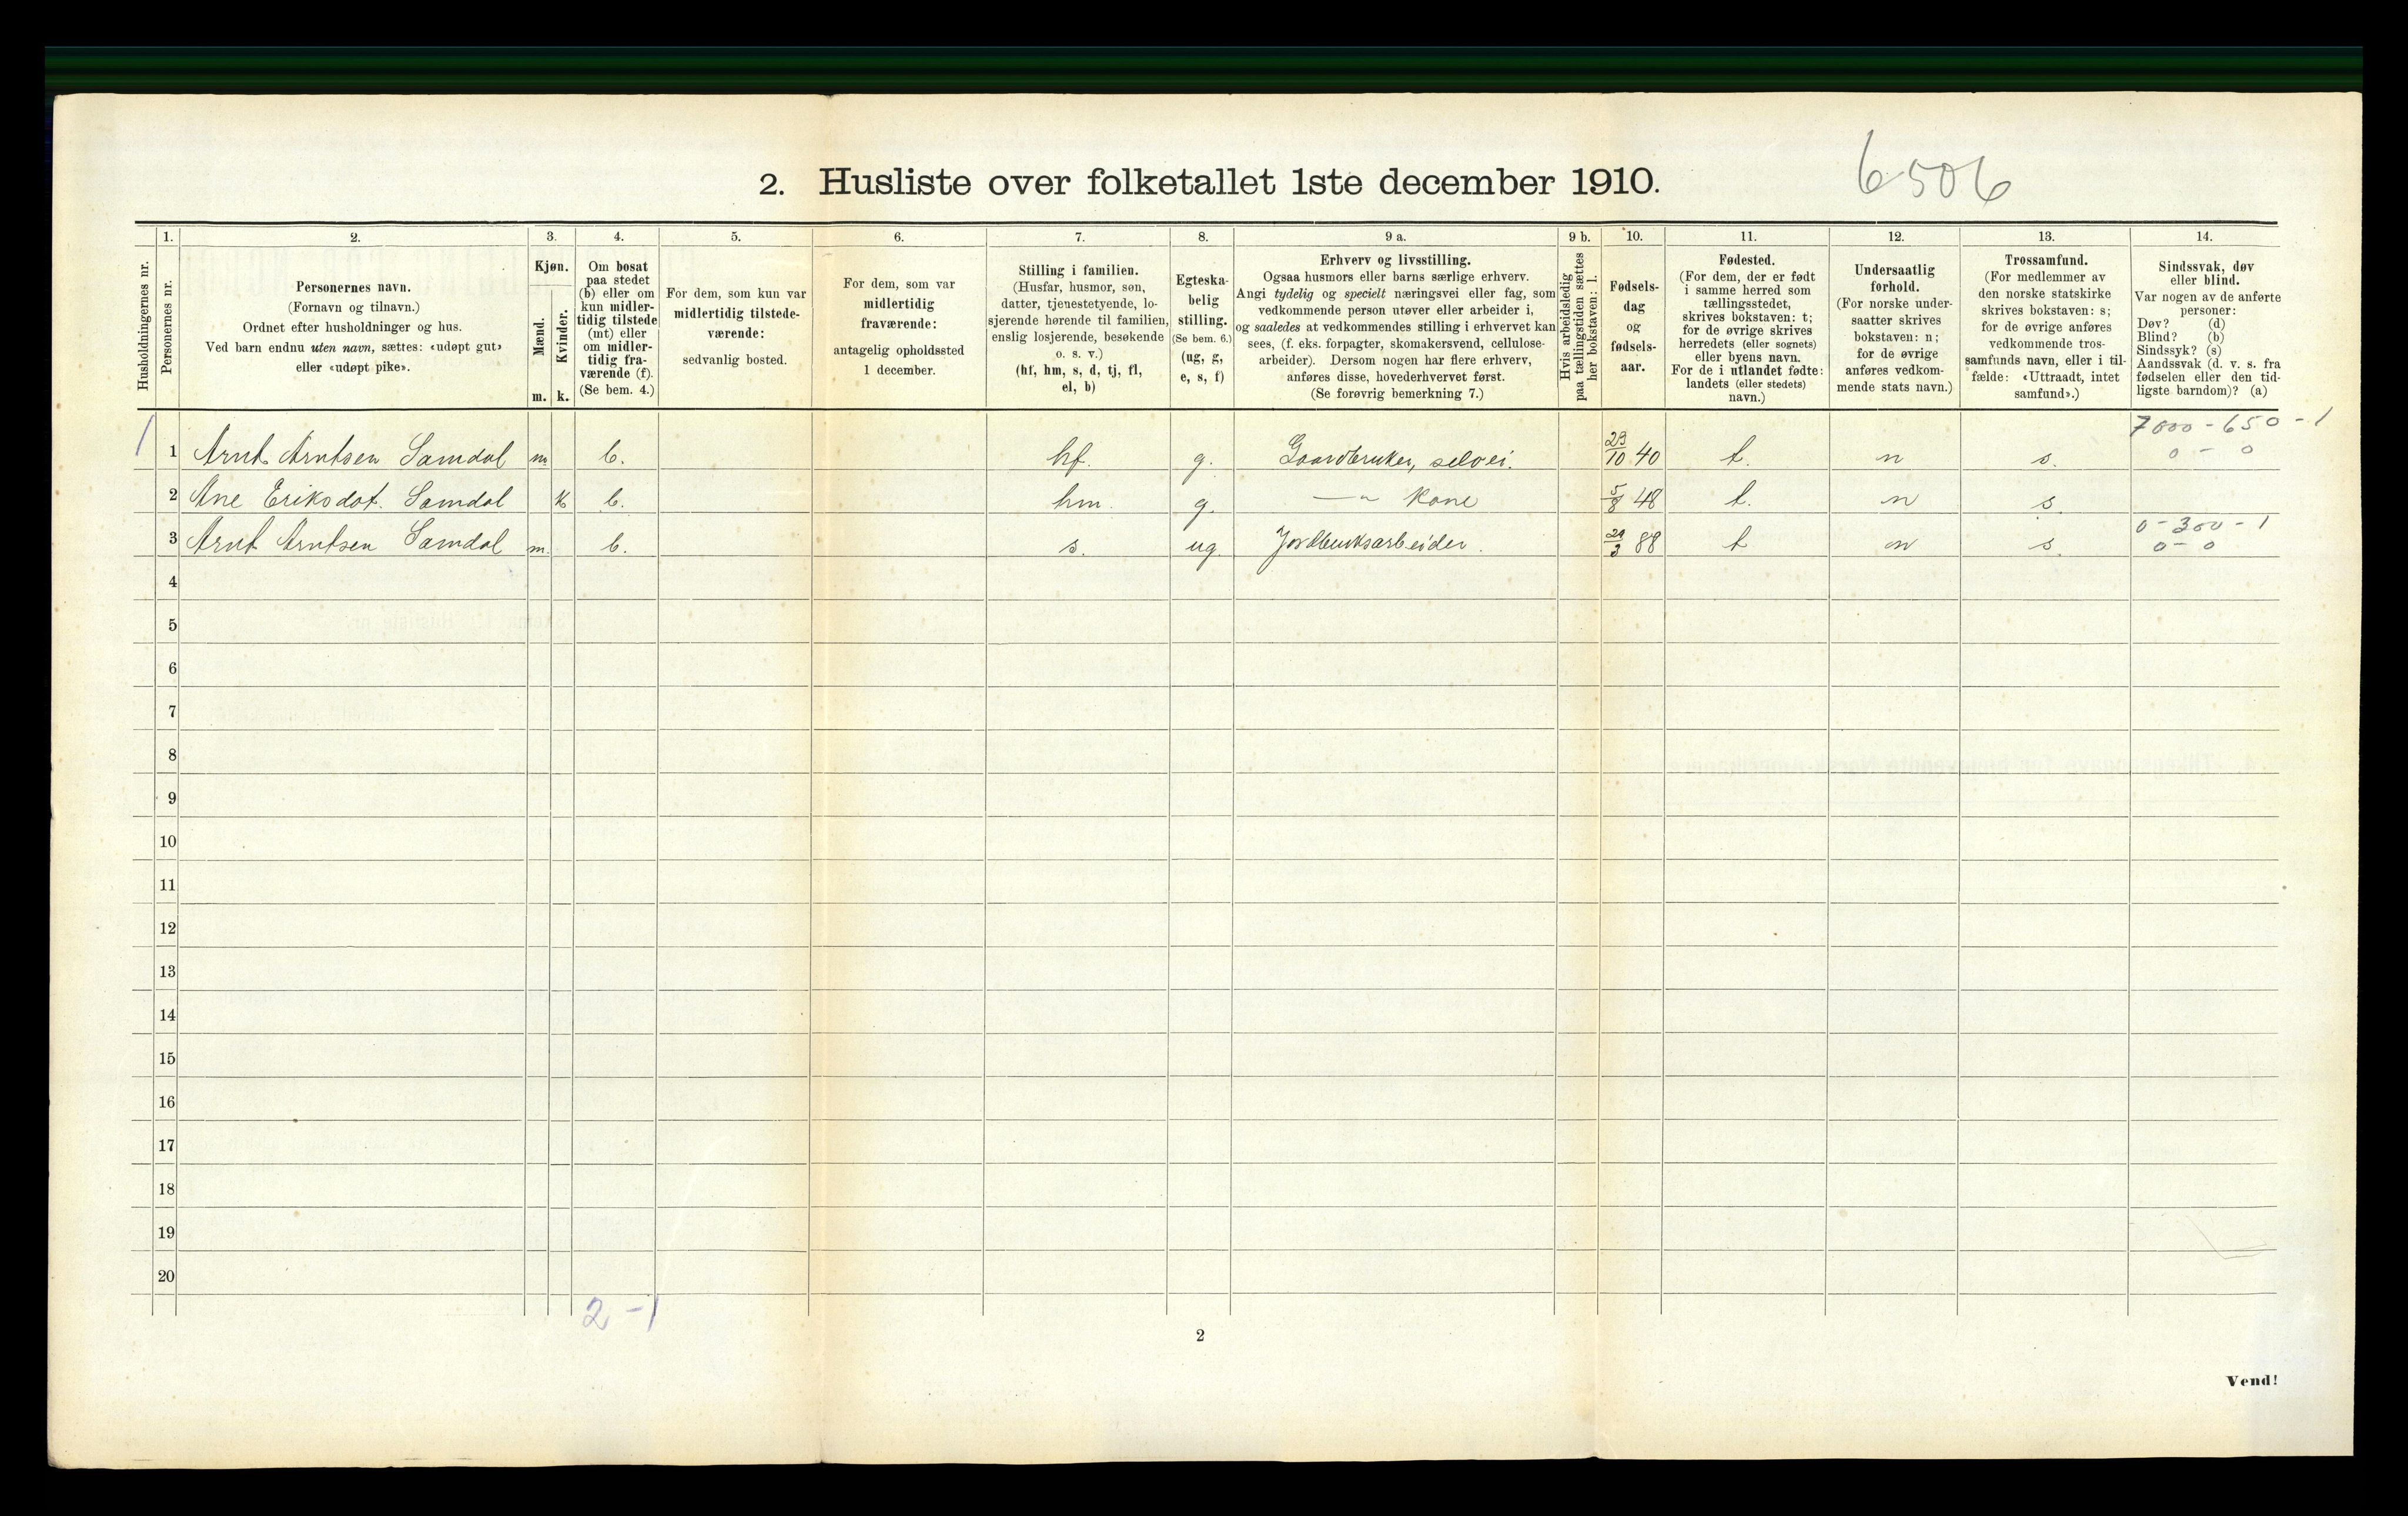 6506
2. Husliste over folketallet 1ste december 1910.
1. 2. 3. 4. 5. 6. 7. 8. 9 a. 9 b. 10. 11. 12. 13. 14.
Husholdningernes nr.
Personernes nr.
Personernes navn.
(Fornavn og tilnavn.)
Ordnet efter husholdninger og hus.
Ved barn endnu uten navn, sættes: «udøpt gut»
eller «udøpt pike».
Kjøn.
Mænd.
Kvinder.
m. k.
Om bosat
paa stedet
(b) eller om
kun midler-
tidig tilstede
(mt) eller
om midler-
tidig fra-
værende (f).
(Se bem. 4.)
For dem, som kun var
midlertidig tilstede-
værende:
sedvanlig bosted.
For dem, som var
midlertidig
fraværende:
antagelig opholdssted
1 december.
Stilling i familien.
(Husfar, husmor, søn,
datter, tjenestetyende, lo-
sjerende hørende til familien,
enslig losjerende, besøkende
o. s. v.)
(hf, hm, s, d, tj, fl,
el, b)
Egteska-
belig
stilling.
(Se bem. 6.)
(ug, g,
e, s, f)
Erhverv og livsstilling.
Ogsaa husmors eller barns særlige erhverv.
Angi tydelig og specielt næringsvei eller fag, som
vedkommende person utøver eller arbeider i,
og saaledes at vedkommendes stilling i erhvervet kan
sees, (f. eks. forpagter, skomakersvend, cellulose-
arbeider). Dersom nogen har flere erhverv,
anføres disse, hovederhvervet først.
(Se forøvrig bemerkning 7.)
Hvis arbeidsledig
paa tællingstiden sættes
her bokstaven: l.
Fødsels-
dag
og
fødsels-
aar.
Fødested.
(For dem, der er født
i samme herred som
tællingsstedet,
skrives bokstaven: t;
for de øvrige skrives
herredets (eller sognets)
eller byens navn.
For de i utlandet fødte:
landets (eller stedets)
navn.)
Undersaatlig
forhold.
(For norske under-
saatter skrives
bokstaven: n;
for de øvrige
anføres vedkom-
mende stats navn.)
Trossamfund.
(For medlemmer av
den norske statskirke
skrives bokstaven: s;
for de øvrige anføres
vedkommende tros-
samfunds navn, eller i til-
fælde: «Uttraadt, intet
samfund».)
Sindssvak, døv
eller blind.
Var nogen av de anførte
personer:
Døv? (d)
Blind? (b)
Sindssyk? (s)
Aandssvak (d. v. s. fra
fødselen eller den tid-
ligste barndom)? (a)
7000 - 650 - 1
1 1 Arnt Arntsen Samdal m b. hf. g. Gaardbruker, selvei. 23/10 40 t. n s. 0 - 0
2 Ane Eriksdat. Samdal k b. hm. g. —"— Kone 5/8 48 t. n s.
0 - 300 - 1
3 Arnt Arntsen Samdal m. b. s. ug. Jordbruksarbeider. 29/3 88 t n s. 0 - 0
4
5
6
7
8
9
10
11
12
13
14
15
16
17
18
19
20
2 - 1
2
Vend!